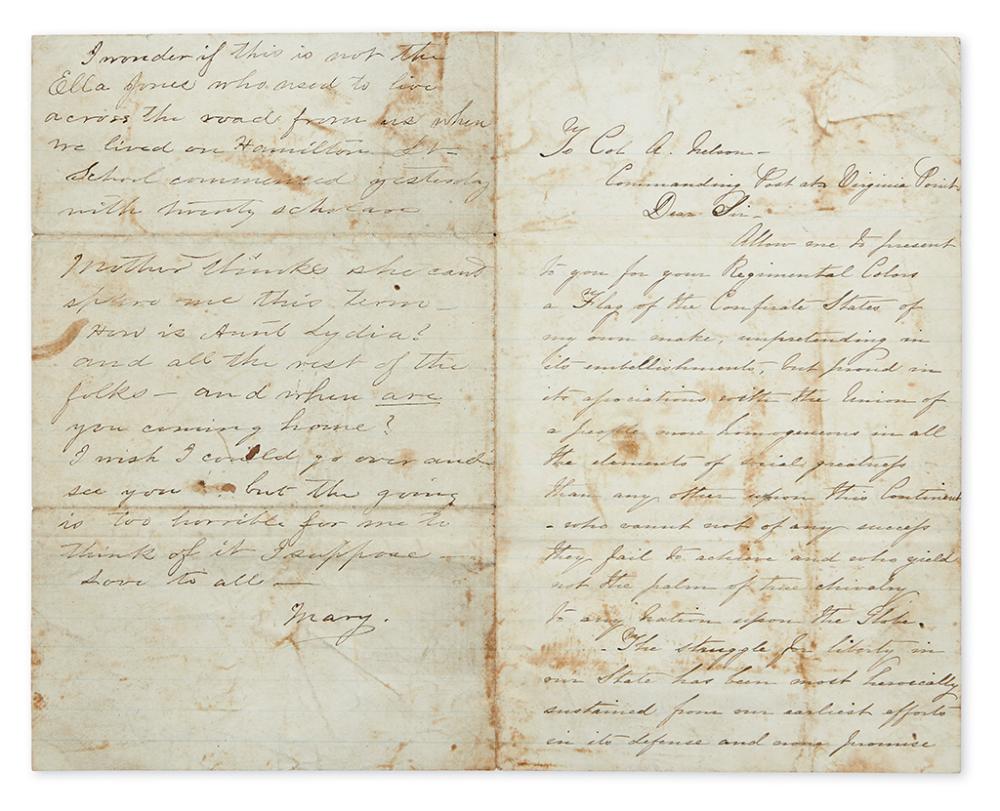 I wonder if this is not the
Ella Jones who used to live
across the road from us when
we lived on Hamilton St -
School commenced yesterday
with twenty scholars
Mother thinks she cant
spare me this term -
How is Aunt Lydia?
and all the rest of the
folks - and when are
you coming home?
I wish I could go over and
see you but the going
is too horrible for me to
think of it I suppose -
Love to all -
Mary.
To Col A. Nelson -
Commanding Post at Virginia Point
Dear Sir -
Allow me to present
to you for your Regimental Colors
a Flag of the Confirate States of
my own make, unpretending in
its embellishments, but proud in
its associations with the Union of
a people more homogeneous in all
the elements of social greatness
than any other upon this Continent
- who vaunt not of any success
they fail to achieve and who yield
not the palm of true chivalry
to any Nation upon the Globe.
- The struggle for liberty in
our State has been most heroically
sustained from our earliest efforts
in its defense and more promise